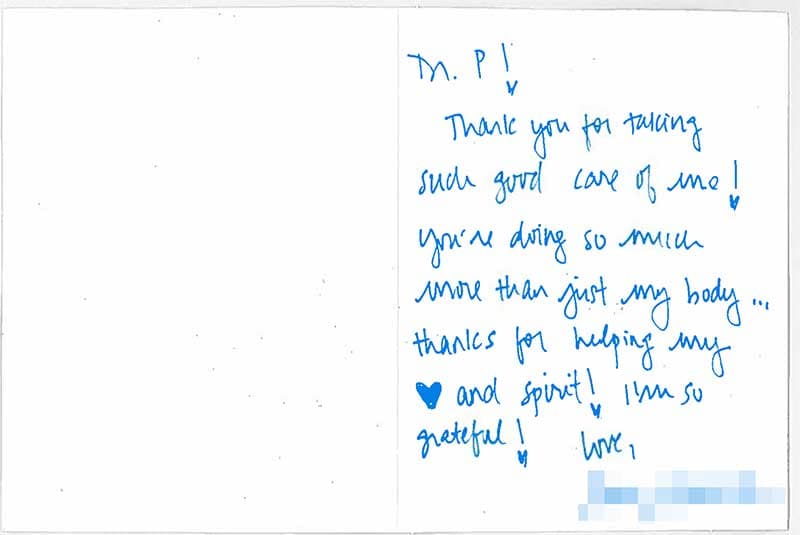 Dr. P!
Thank you for taking
such good care of me!
you're doing so much
more than just my body...
thanks for helping my
♥ and spirit! I'm so
grateful! Love,